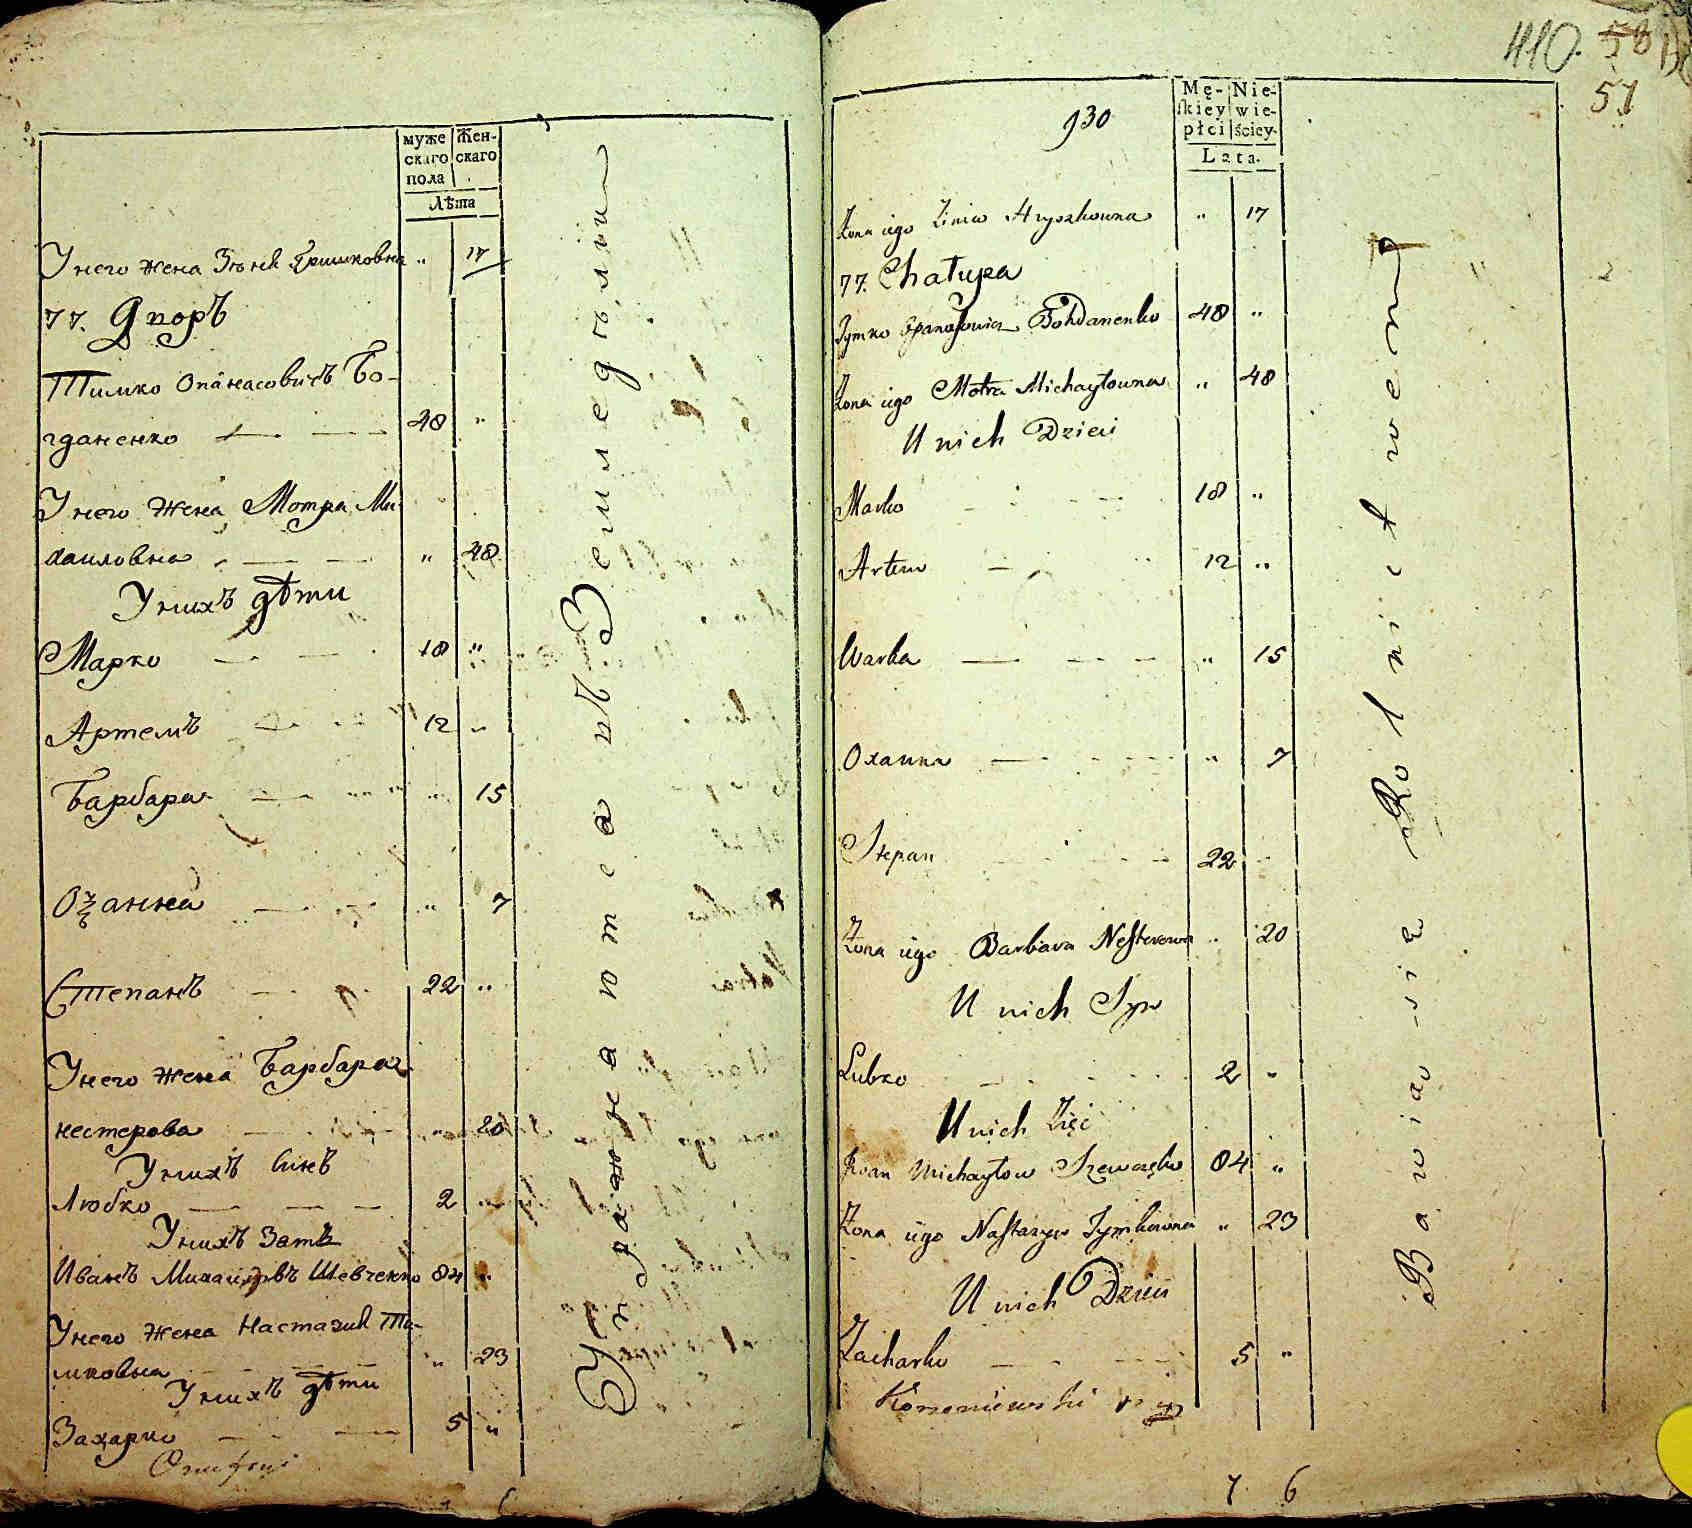 муже
скаго
пола
Жен-
скаго
Лѣта
У него жена Зѣнѣя Гришковна " 17
77. Дворъ
Тимко Опанасовичъ Бо-
гданенко 48 "
У него жена Мотра Ми-
хаиловна " 48
У нихъ дѣти
Марко 18 "
Артемъ 12 "
Барбара " 15
Оѯанна " 7
Степанъ 22 "
У него жена Барбара
нестерова " 20
У нихъ Синъ
Любко 2 "
У нихъ Зать
Иванъ Михаиловъ Шевченко 84 "
У него жена Настазия Ти-
мковна " 23
У нихъ дѣти
Захарко 5 "
Упражняютса въ Земледѣлии
410. 58
57
930
Mę-
skiey
płci
Nie-
wie-
ściey
Lata.
Zona iego Zinia Hryszkowna " 17
77. Chałupa
Tymko Opanasowicz Bohdanenko 48 "
Zona iego Motra Michayłowna " 48
U nich Dzieci
Marko 18 "
Artem 12 "
Warka " 15
Oxanna " 7
Stepan 22
Zona iego Barbara Nesterowa " 20
U nich Syn
Lubko 2 "
U nich Zięć
Iwan Michayłow Szewczęko 84 "
Zona iego Nastazya Tymkowna " 23
U nich Dzieci
Zacharko 5 "
Bawią się Rolnictwem
7 6